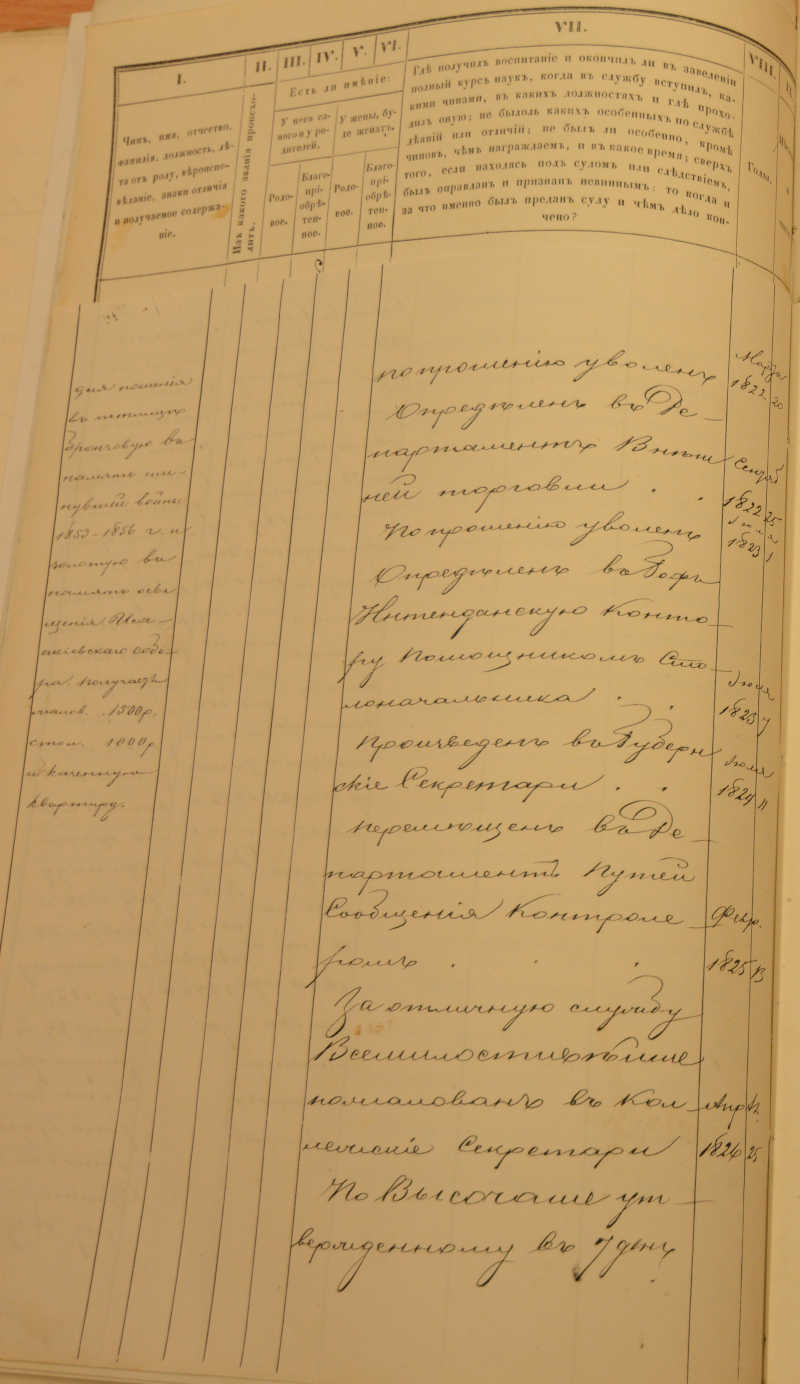 I.
II.
III.
IV.
V.
VI.
VII.
VIII.
Чинъ, имя, отчество,
фамилія, должность, лѣ-
та отъ роду, вѣроиспо-
вѣданіе, знаки отличія
и получаемое содержа-
ніе.
Изъ какого званія происхо-
дитъ.
Есть ли имѣніе:
У него са-
мого и у ро-
дителей.
У жены, бу-
де женатъ.
Родо-
вое.
Благо-
прі-
обрѣ-
тен-
ное.
Родо-
вое.
Благо-
прі-
обрѣ-
тен-
ное.
Гдѣ получилъ воспитаніе и окончилъ ли въ заведеніи
полный курсъ наукъ, когда въ службу вступилъ, ка-
кими чинами, въ какихъ должностяхъ и гдѣ прохо-
дилъ оную; не было ль какихъ особенныхъ по службѣ
дѣяній или отличій; не былъ ли особенно, кромѣ
чиновъ, чѣмъ награждаемъ, и въ какое время; сверхъ
того, если находясь подъ судомъ или слѣдствіемъ,
былъ оправданъ и признанъ невиннымъ: то когда и
за что именно былъ преданъ суду и чѣмъ дѣло кон-
чено?
Годы.
для ношенія
въ петлицѣ
бронзовую въ
память ми-
нувшей войны
1853-1856 г. и
золотую въ
память освя
щенія Иса-
акіевскаго собо-
ра. Получаетъ
жалов. 1500р.
стол. 1000р.
и казенную
квартиру.
по прошенію уволенъ
Марта
1822 20
Опредѣленъ въ Де-
партаментъ Внѣш
ней торговли . .
Сентяб
1822 25
По прошенію уволенъ
1823 1
Опредѣленъ въ Гофъ
Интенданскую Конто-
ру Помощникомъ Сто-
лоначальника . .
Іюня
1823 7
Произведенъ въ Губерн
скіе Секретари . .
Іюля
1824 11
Перемѣщенъ въ Де-
партаментъ Путей
Сообщенія Контроле-
ромъ . . .
Февр.
1825 13
За отличную службу
Всемилостивѣйше
пожалованъ въ Кол-
лежскіе Секретари
Апрѣл.
1826 25
По Высочайше ут-
вержденному въ 7 день